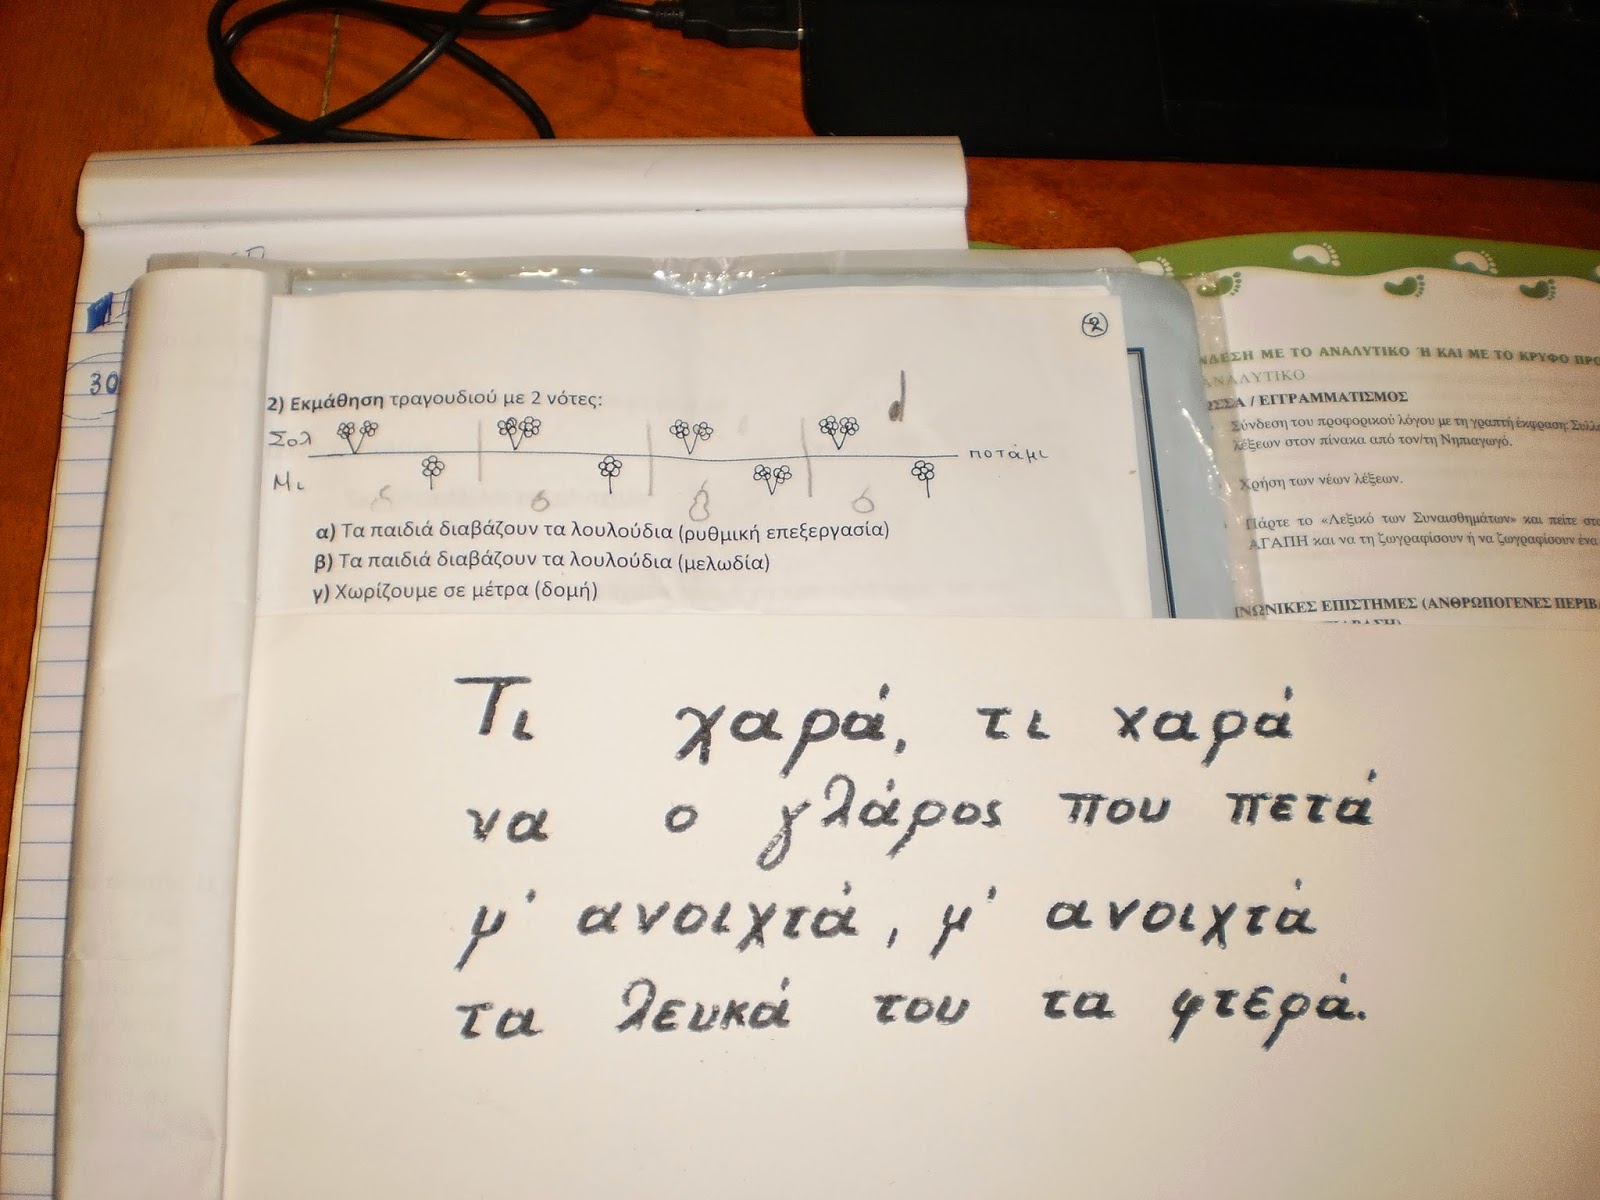 30
2
2) Εκμάθηση τραγουδιού με 2 νότες:
d
Σολ
ποτάμι
Μι
α) Τα παιδιά διαβάζουν τα λουλούδια (ρυθμική επεξεργασία)
β) Τα παιδιά διαβάζουν τα λουλούδια (μελωδία)
γ) Χωρίζουμε σε μέτρα (δομή)
ΝΔΕΣΗ ΜΕ ΤΟ ΑΝΑΛΥΤΙΚΟ Ή ΚΑΙ ΜΕ ΤΟ ΚΡΥΦΟ ΠΡΟ
ΑΝΑΛΥΤΙΚΟ
ΩΣΣΑ / ΕΓΓΡΑΜΜΑΤΙΣΜΟΣ
Σύνδεση του προφορικού λόγου με τη γραπτή έκφραση: Συλλ
λέξεων στον πίνακα από τον/τη Νηπιαγωγό.
Χρήση των νέων λέξεων.
Πάρτε το «Λεξικό των Συναισθημάτων» και πείτε στ
ΑΓΑΠΗ και να τη ζωγραφίσουν ή να ζωγραφίσουν ένα
ΙΝΩΝΙΚΕΣ ΕΠΙΣΤΗΜΕΣ (ΑΝΘΡΩΠΟΓΕΝΕΣ ΠΕΡΙΒ
Τι χαρά, τι χαρά
να ο γλάρος που πετά
μ' ανοιχτά, μ' ανοιχτά
τα λευκά του τα φτερά.